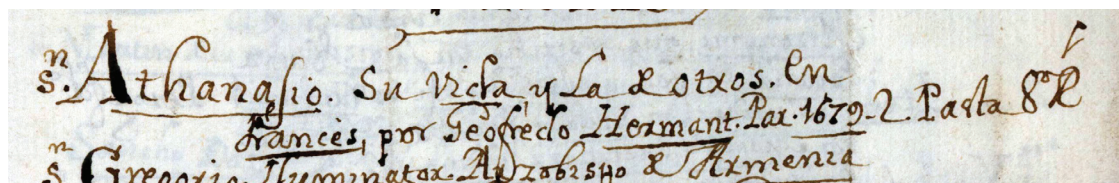 Sn. Athanasio. Su Vida, y La de otros. en
frances, por Geofredo Hermant. Par. 1679. 2. Pasta 8º R
Sn. Gregorio Iluminator. Arzobispo de Armenia